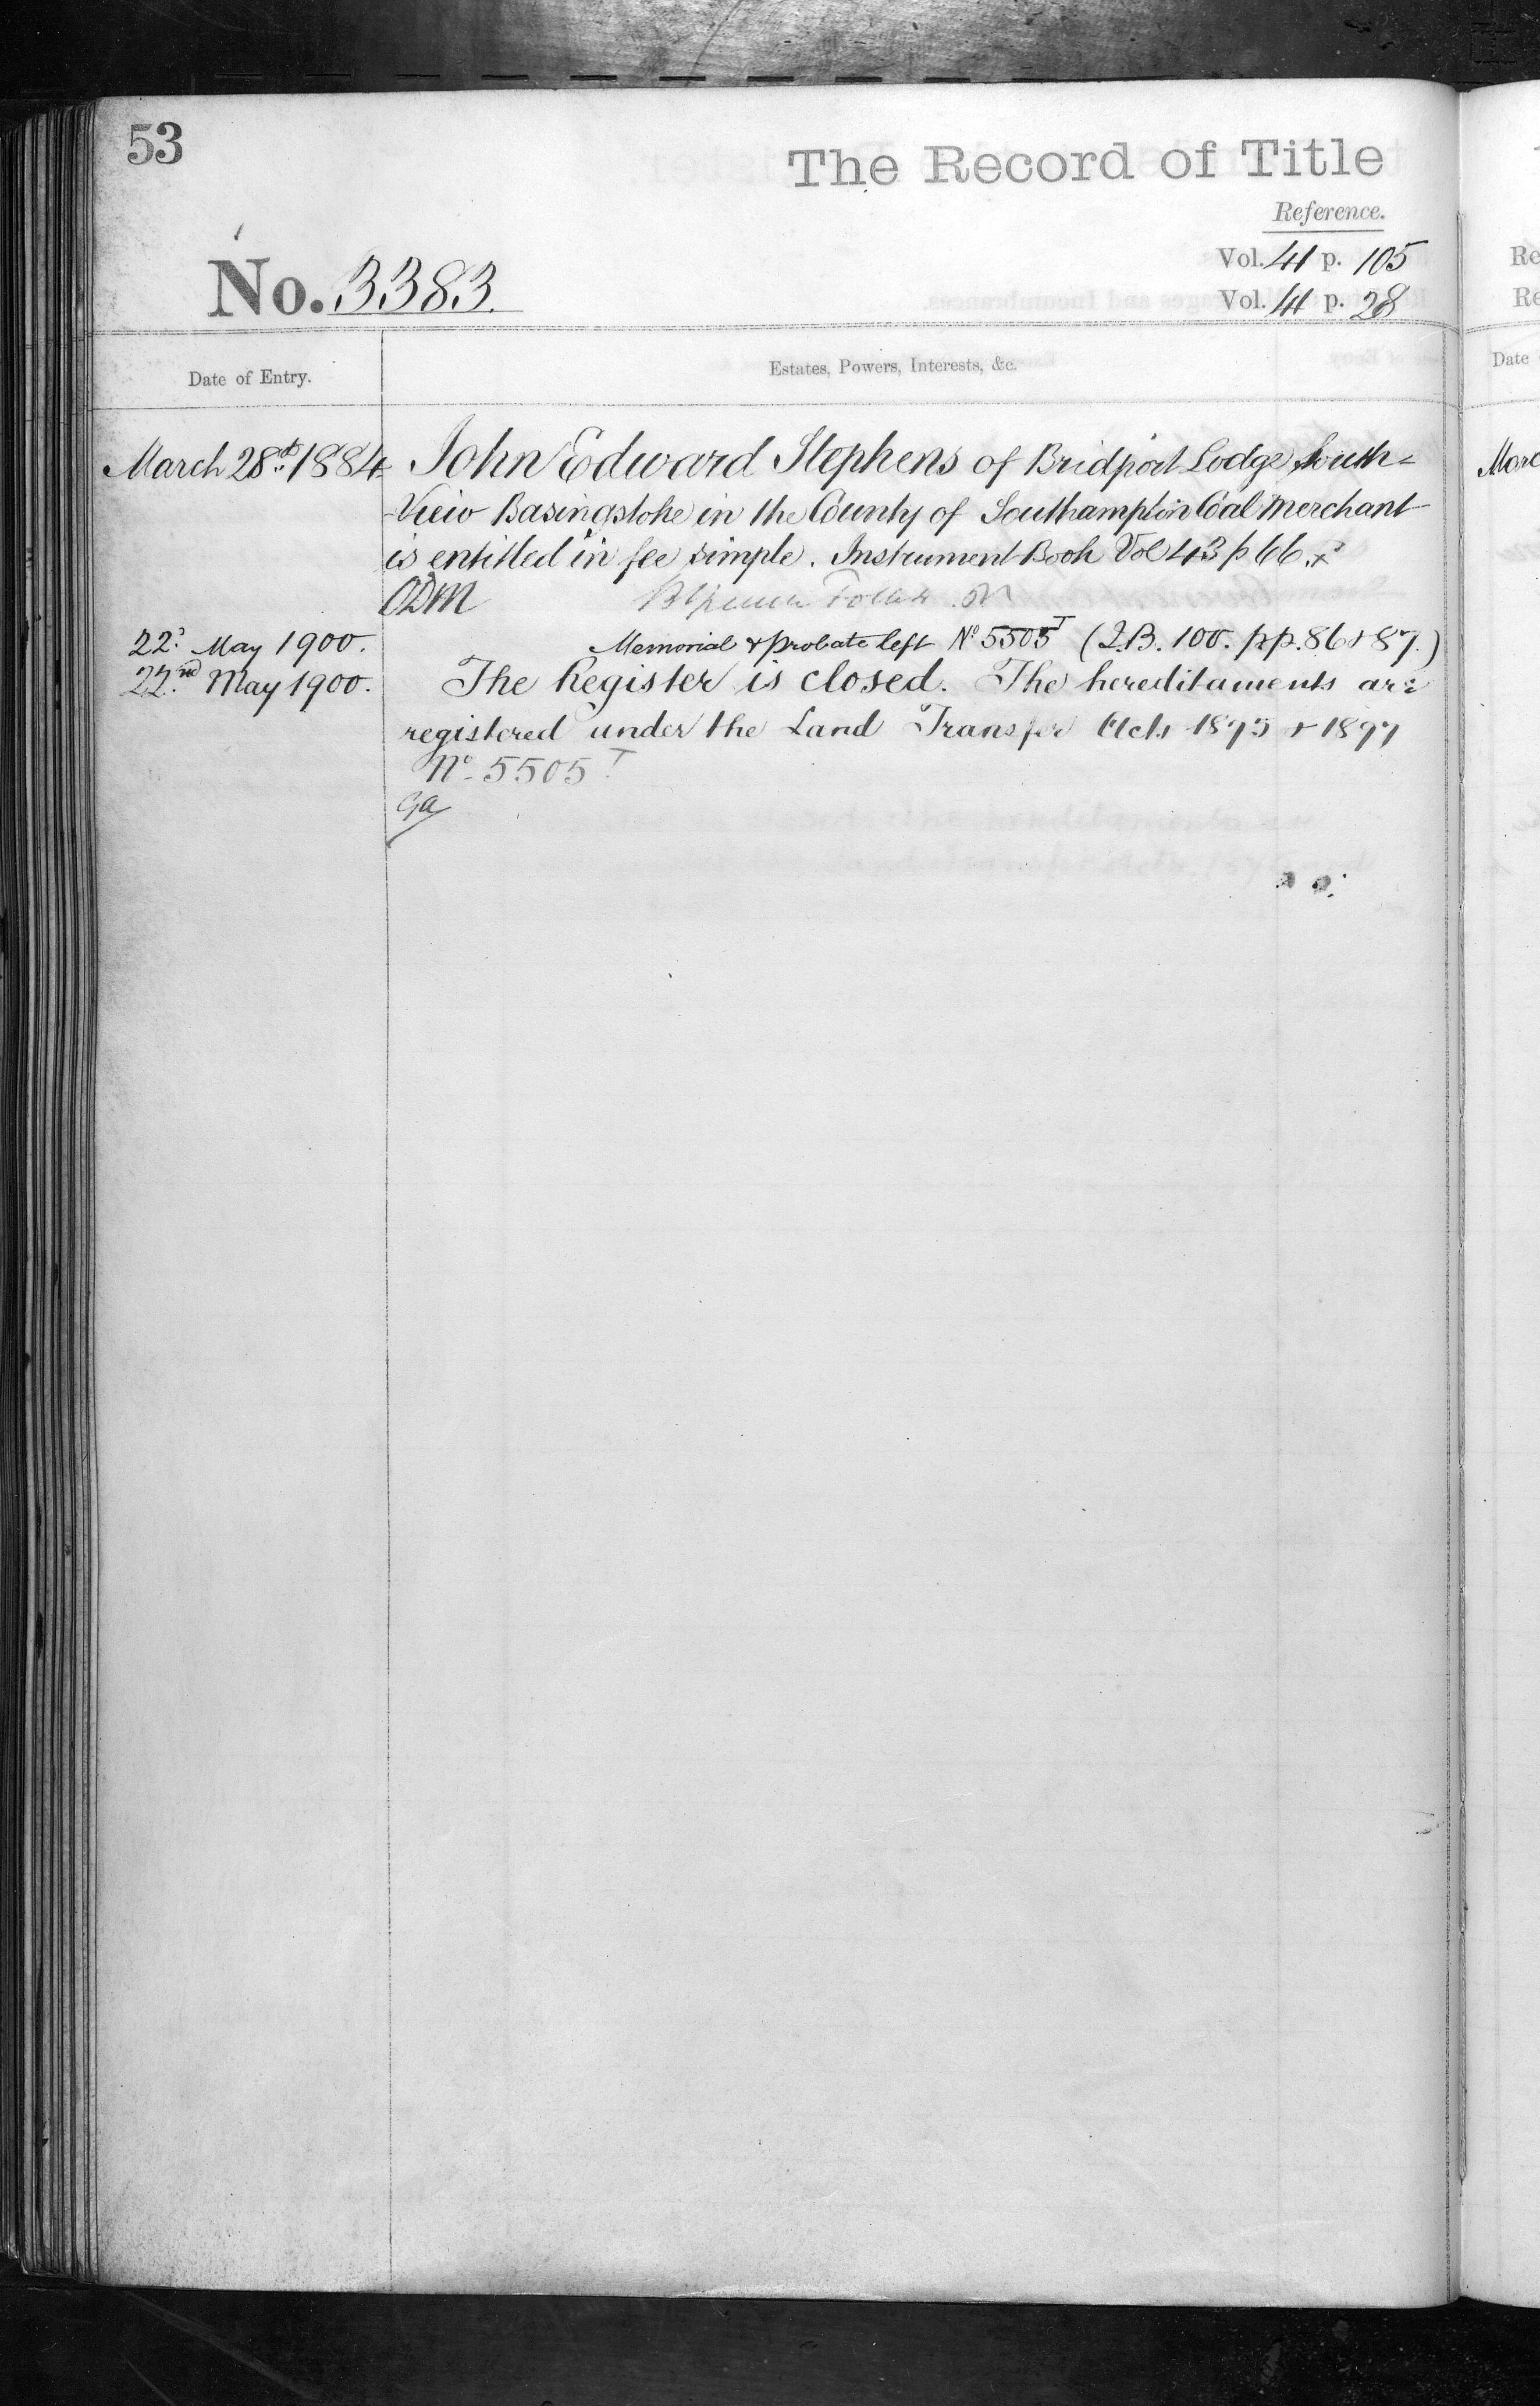 53
The Record of Title
Reference.
Vol. 41 p. 105
No. 3383.
Vol. 41 p. 28
Date of Entry.
Estates, Powers, Interests, &c.
March 28th 1884 John Edward Stephens of Bridport Lodge South=
-View Basingstoke in the County of Southampton Coal Merchant
is entitled in fee simple. Instrument Book Vol 43 p 66.
ODM
22d May 1900. Memorial & probate left No 5505T (I.B. 100. pp. 86 & 87.)
22nd May 1900. The Register is closed. The hereditaments are
registered under the Land Transfer Acts 1875 & 1897
No 5505T
Ga
Date